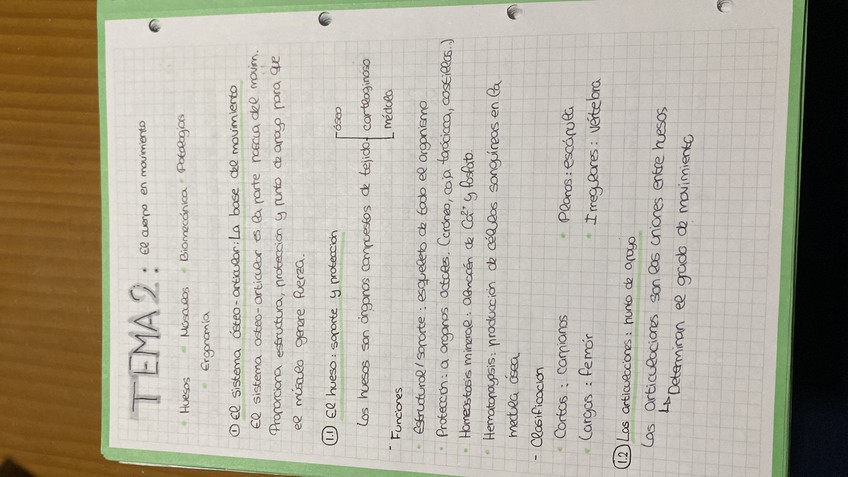 TEMA 2: El cuerpo en movimiento
• Huesos • Músculos • Biomecánica • Patologías
• Ergonomía
① El sistema ósteo-articular: La base del movimiento
El sistema osteo-articular es la parte pasiva del movim.
Proporciona estructura, protección y punto de apoyo para que
el músculo genere fuerza.
1.1 El hueso: soporte y protección
Los huesos son órganos compuestos de tejido óseo
cartilaginoso
médula
- Funciones
• Estructural/soporte: esqueleto de todo el organismo
• Protección: a organos vitales. (cráneo, caja torácica, costillas..)
• Homeostasis mineral: almacén de Ca²⁺ y fosfato.
• Hematopoyesis: producción de células sanguíneas en la
medula ósea
- Clasificación
• Cortos: carpianos • Planos: escápula
• Largos: femór • Irregulares: vértebra
1.2 Las articulaciones: punto de apoyo
Las articulaciones son las uniones entre huesos
↳ Determinan el grado de movimiento